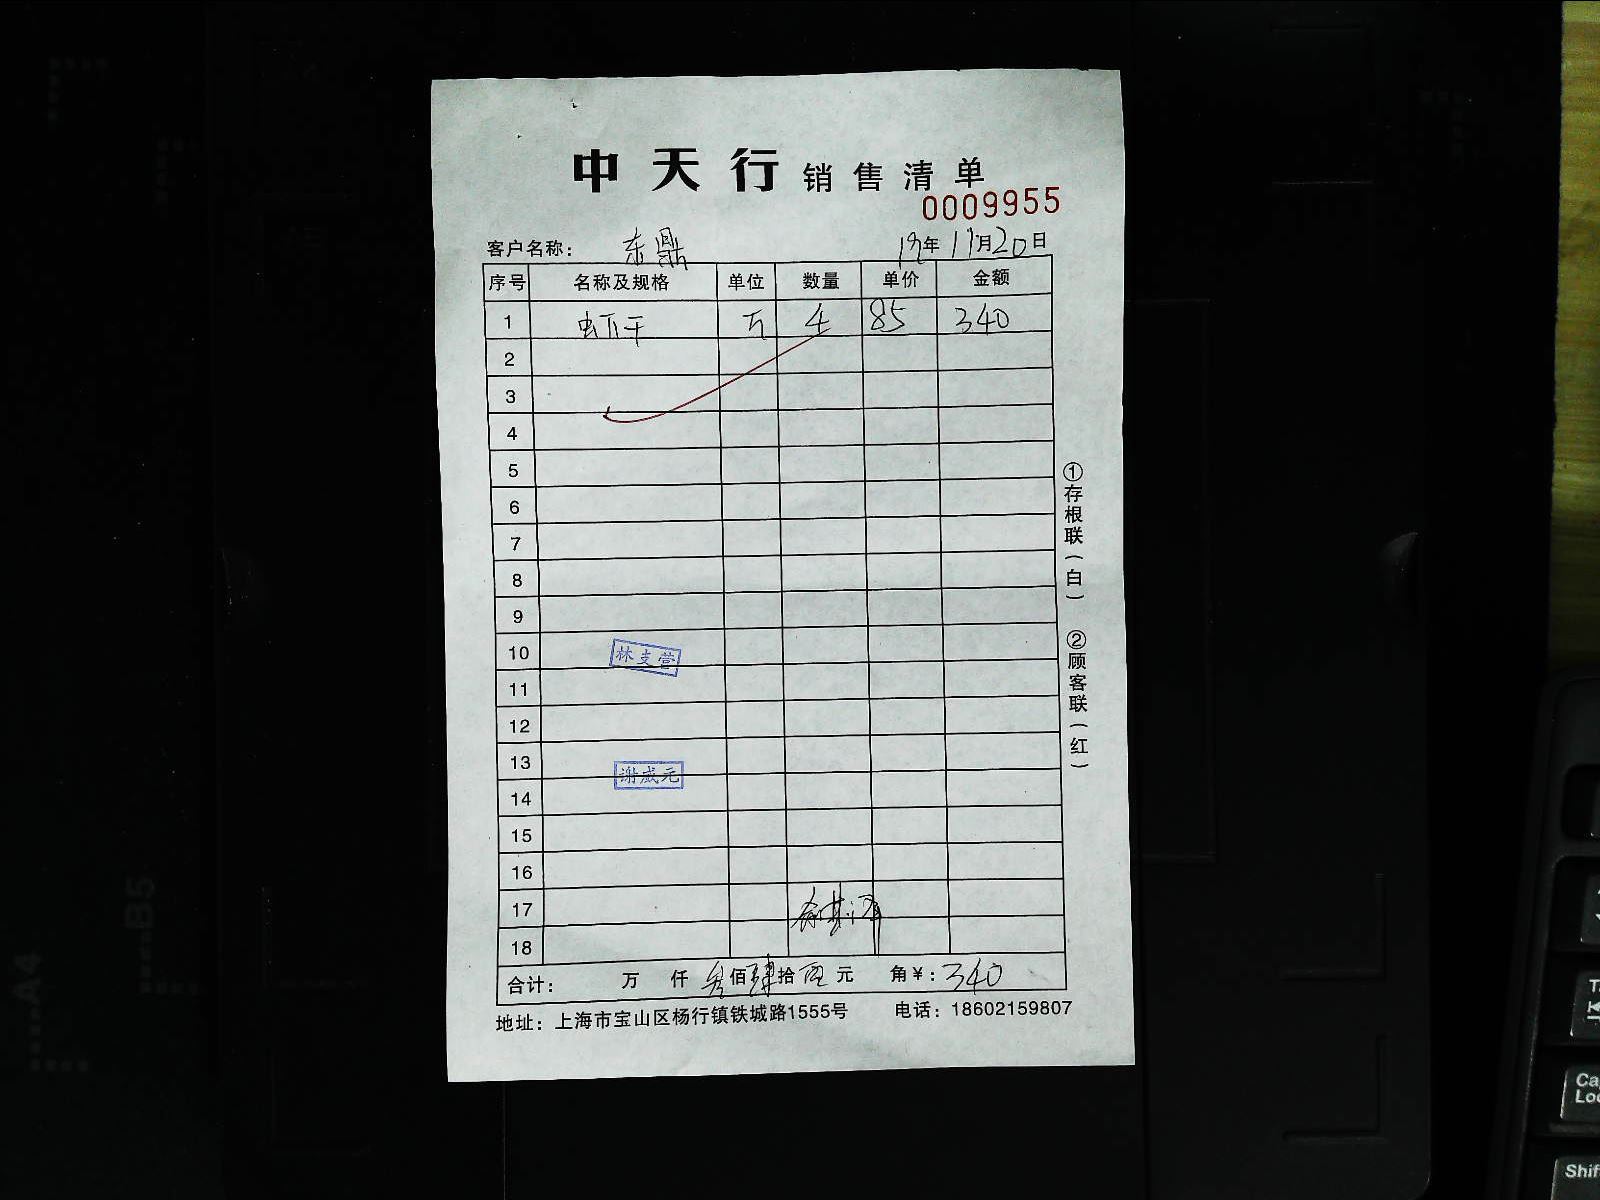 中天行 销售清单
0009955
客户名称： 东鼎 19年11月20日
序号 名称及规格 单位 数量 单价 金额
1 虾干 斤 4 85 340
2
3
4
5
6
7
8
9
10 林支营
11
12
13 谢成元
14
15
16
17
18
合计： 万 仟 叁佰肆拾 元 角¥：340
地址：上海市宝山区杨行镇铁城路1555号 电话：18602159807
①存根联（白） ②顾客联（红）
B5
A4
Shif